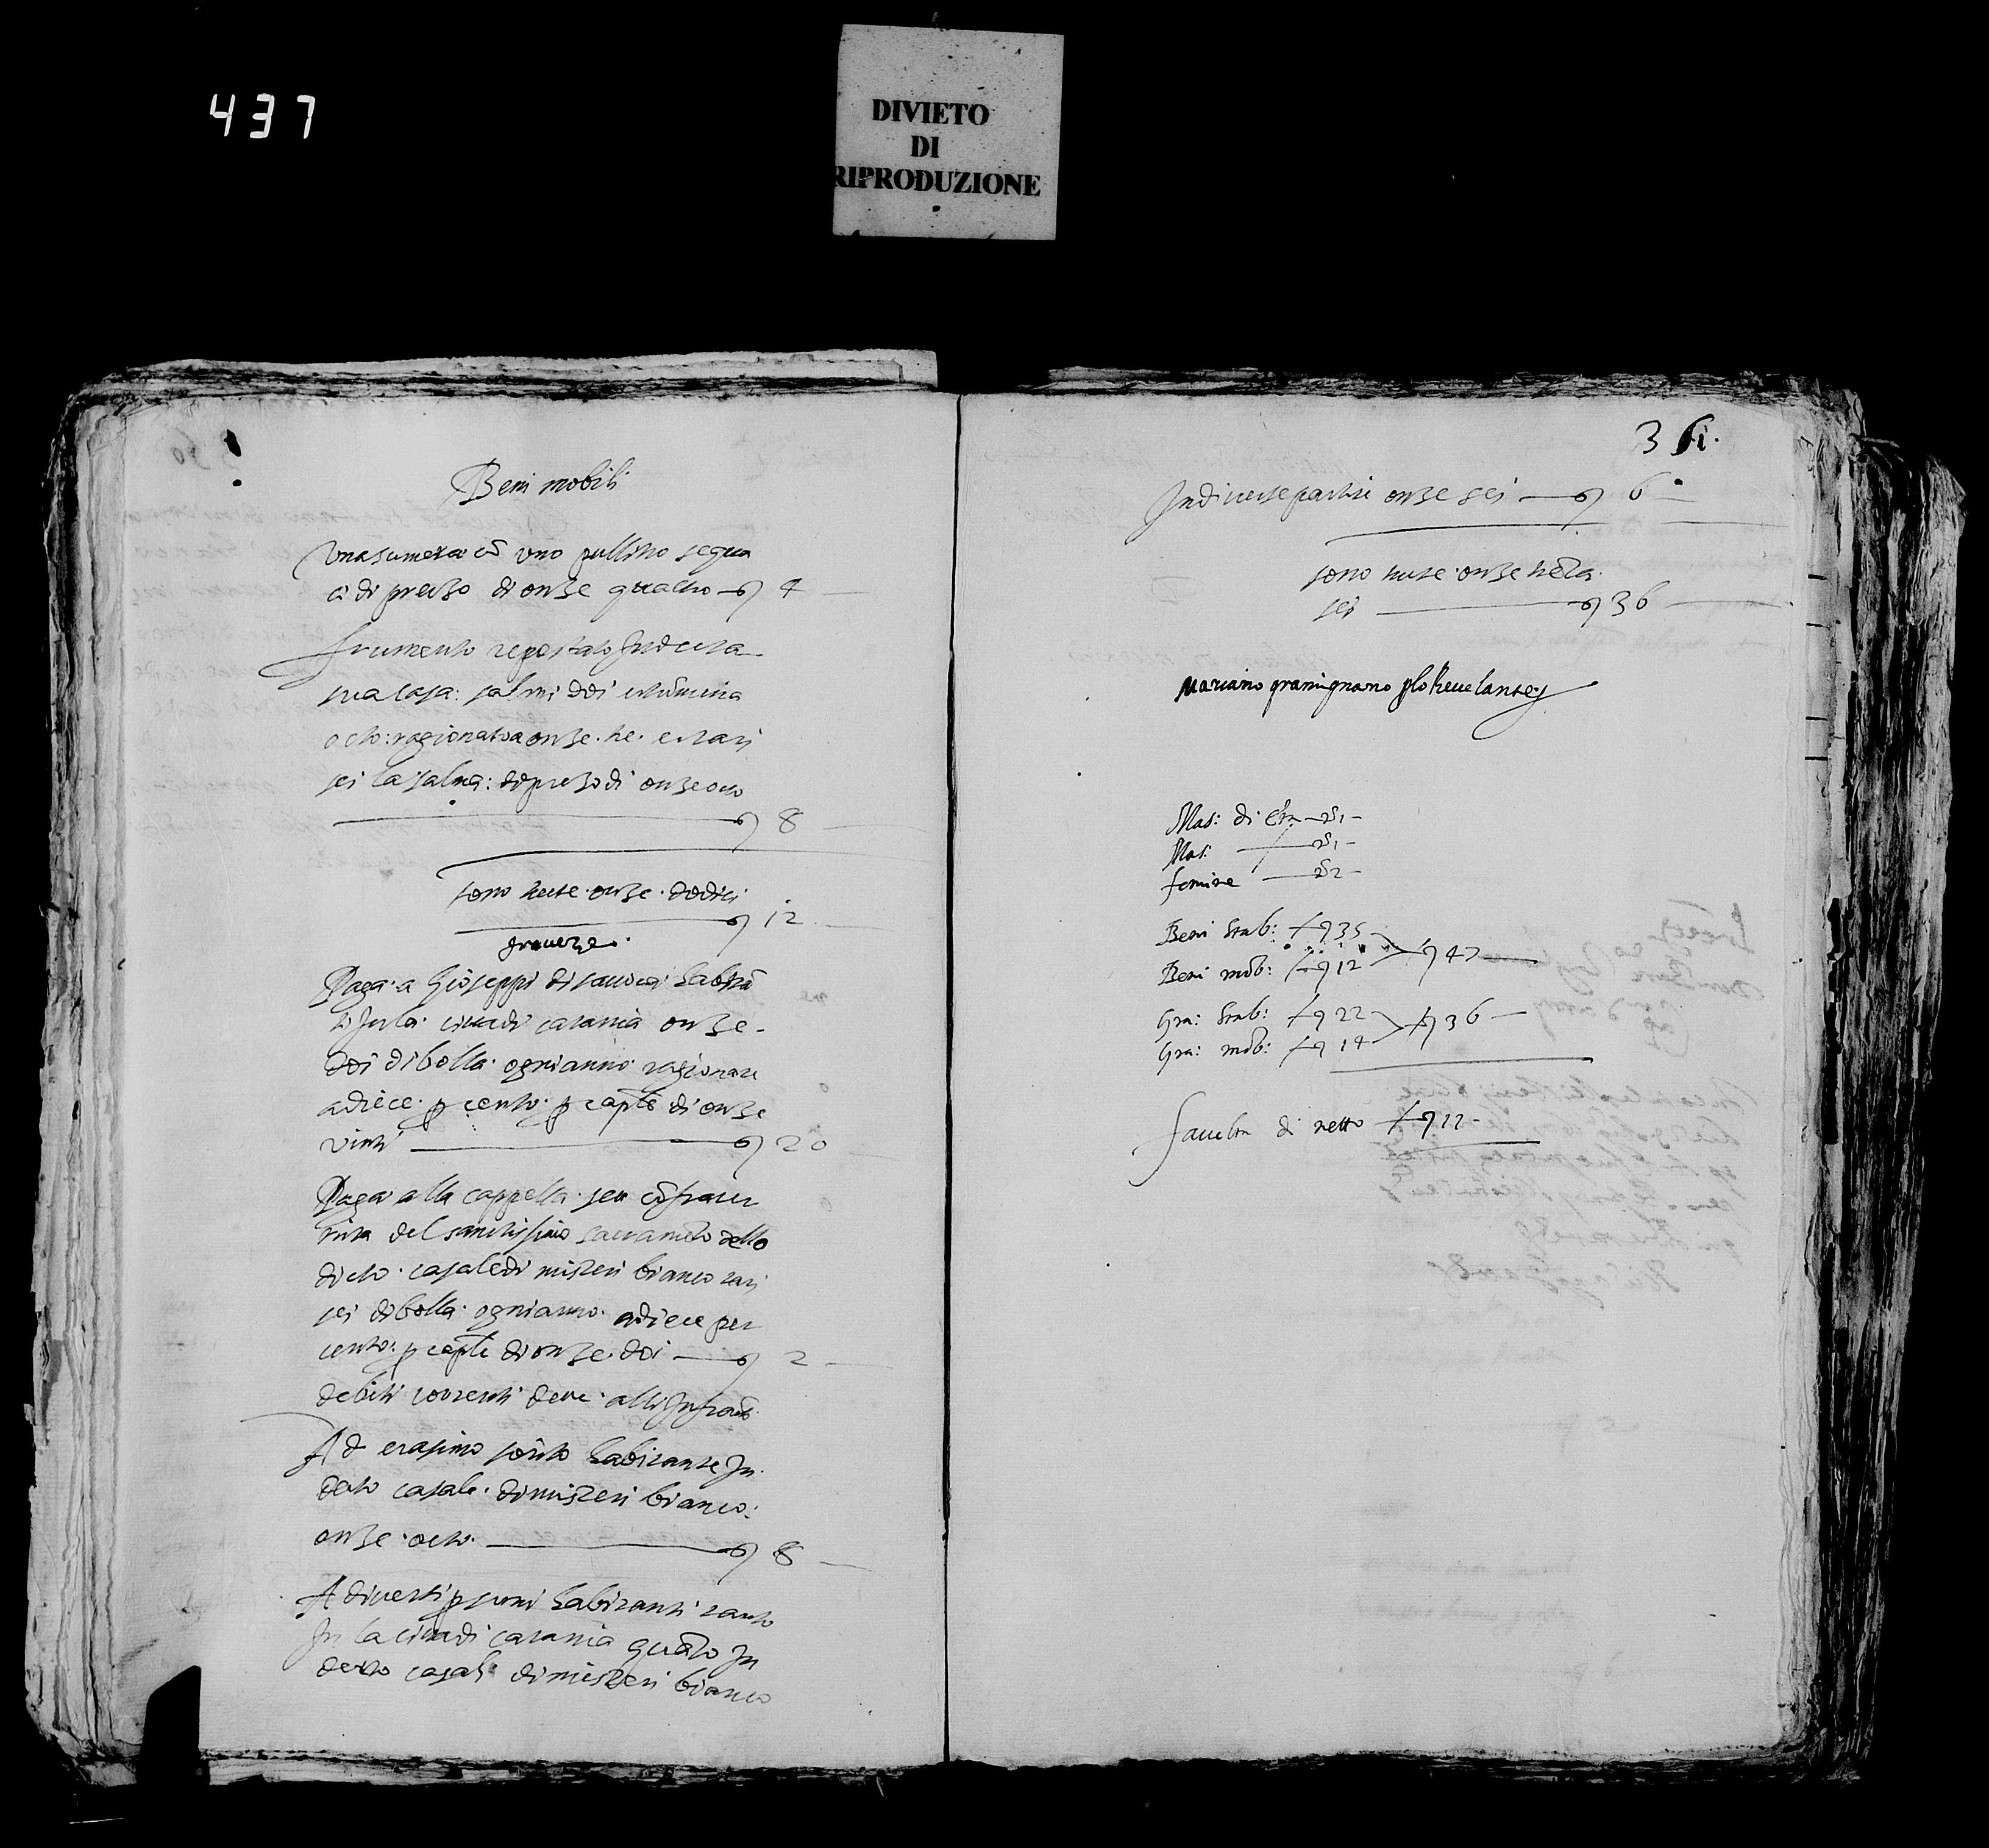 437
DIVIETO
DI
RIPRODUZIONE
Beni mobili
Una sumera cō uno pullitro sequa
ci di prezzo di onze quatro 4
frumento repostato In dicta
sua casa: salmi doi e tumina
octo: ragionato a onze. tre. e tari
sei la salma: di prezo di onze octo
8
sono tucte. onze. dodici
12
graveze.
Paga. a Gioseppi di habitā
ti In la. citta di catania onze
doi di bolla. ogni anno ragionate
a diece. p cento. p capīle di onze
vinti 20
Paga alla cappella. seu cōfrater
nita del santissimo sacramēto dello
dicto. casale di misteri bianco tari
sei di bolla. ogni anno. a diece per
cento: p capīle di onze. doi 2
debiti correnti deve. alli Infrati
Ad erasimo habitante In
decto casale. di misteri bianco:
onze. octo. 8
A diversi psuni habitanti tanto
In la citta di catania quāto In
decto casale di misteri bianco
361.
In diverse partite onze sei 6
sono tutte. onze trēta
sei 36
Mariano gramignano
Mas: di Etta 1
Mas: 1
femine 2
Beni Stab: 35
47
Beni mob: 12
Gra: Stab: 22
36
Gra: mob: 14
faculta di netto 11